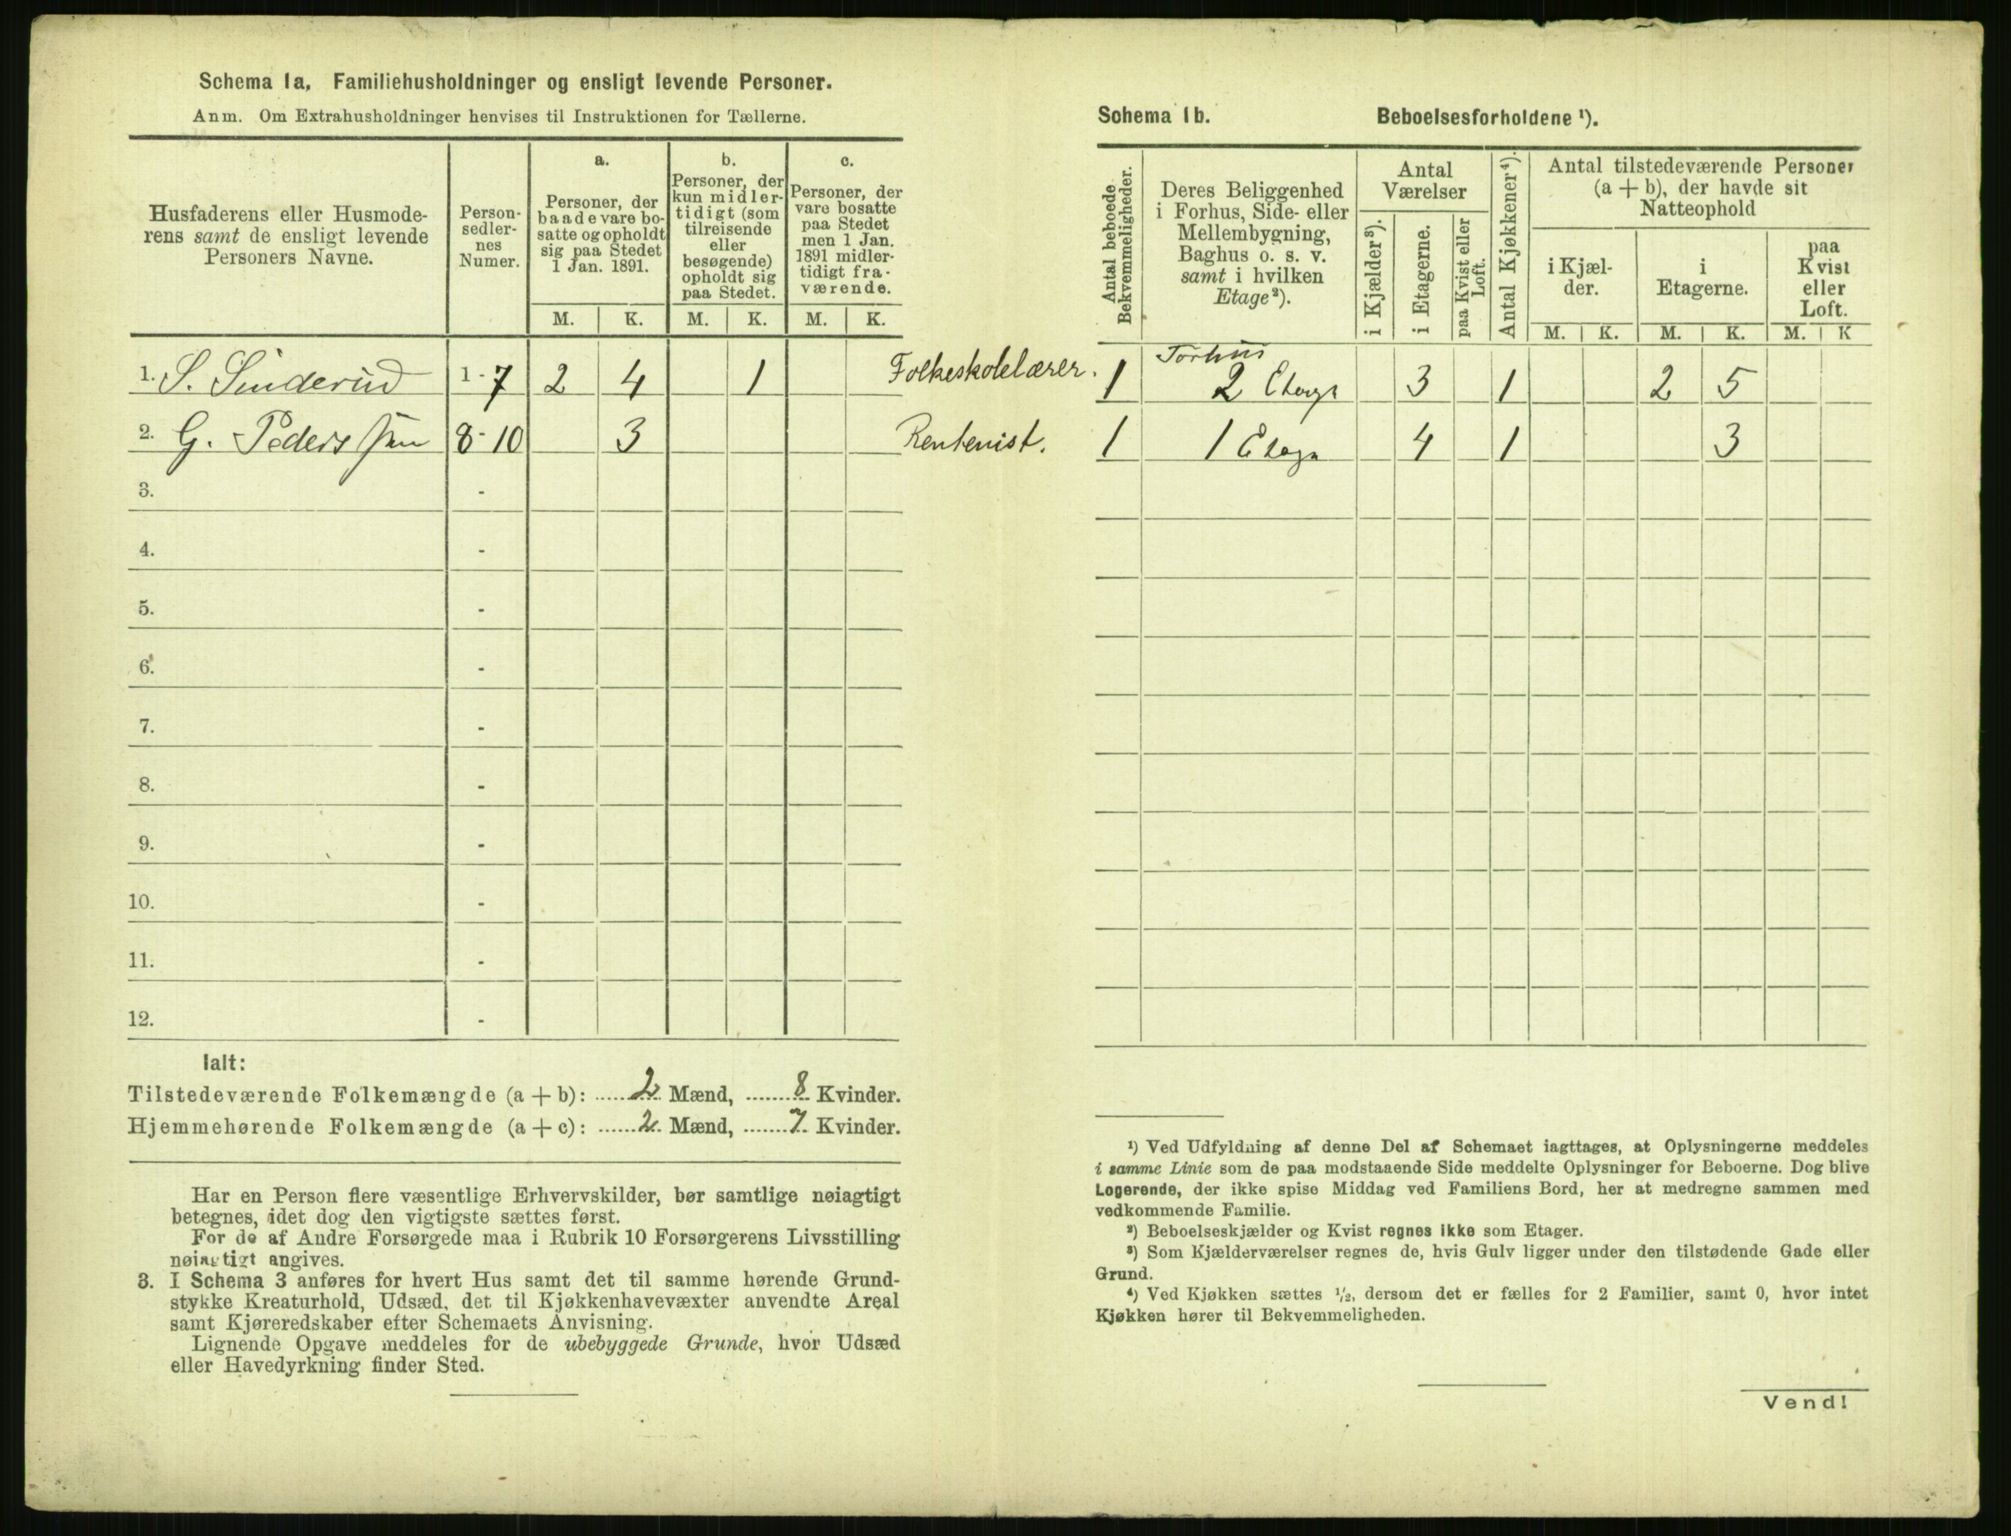 Schema 1a, Familiehusholdninger og ensligt levende Personer.
Anm. Om Extrahusholdninger henvises til Instruktionen for Tællerne.
Husfaderens eller Husmode-
rens samt de ensligt levende
Personers Navne.
Person-
sedler-
nes
Numer.
a.
Personer, der
baade vare bo-
satte og opholdt
sig paa Stedet
1 Jan. 1891.
b.
Personer, der
kun midler-
tidigt (som
tilreisende
eller
besøgende)
opholdt sig
paa Stedet.
c.
Personer, der
vare bosatte
paa Stedet
men 1 Jan.
1891 midler-
tidigt fra-
værende.
M. K. M. K. M. K.
1. S. Sinderud 1-7 2 4 1 Folkeskolelærer.
2. G. Pederssen 8-10 3 Rentenist.
3. -
4. -
5. -
6. -
7. -
8. -
9. -
10. -
11. -
12. -
Ialt:
Tilstedeværende Folkemængde (a+b): 2 Mænd, 8 Kvinder.
Hjemmehørende Folkemængde (a+c): 2 Mænd, 7 Kvinder.
Har en Person flere væsentlige Erhvervskilder, bør samtlige nøiagtigt
betegnes, idet dog den vigtigste sættes først.
For de af Andre Forsørgede maa i Rubrik 10 Forsørgerens Livsstilling
nøiagtigt angives.
3. I Schema 3 anføres for hvert Hus samt det til samme hørende Grund-
stykke Kreaturhold, Udsæd, det til Kjøkkenhavevæxter anvendte Areal
samt Kjøreredskaber efter Schemaets Anvisning.
Lignende Opgave meddeles for de ubebyggede Grunde, hvor Udsæd
eller Havedyrkning finder Sted.
Schema 1b. Beboelsesforholdene ¹).
Antal beboede
Bekvemmeligheder.
Deres Beliggenhed
i Forhus, Side- eller
Mellembygning,
Baghus o. s. v.
samt i hvilken
Etage²).
Antal
Værelser
i Kjælder³).
i Etagerne.
paa Kvist eller
Loft.
Antal Kjøkkener⁴).
Antal tilstedeværende Personer
(a+b), der havde sit
Natteophold
i Kjæl-
der.
i
Etagerne.
paa
Kvist
eller
Loft.
M. K. M. K. M. K
Forhus
1 2 Etage 3 1 2 5
1 1 Etage 4 1 3
¹) Ved Udfyldning af denne Del af Schemaet iagttages, at Oplysningerne meddeles
i samme Linie som de paa modstaaende Side meddelte Oplysninger for Beboerne. Dog blive
Logerende, der ikke spise Middag ved Familiens Bord, her at medregne sammen med
vedkommende Familie.
²) Beboelseskjælder og Kvist regnes ikke som Etager.
³) Som Kjælderværelser regnes de, hvis Gulv ligger under den tilstødende Gade eller
Grund.
⁴) Ved Kjøkken sættes ½, dersom det er fælles for 2 Familier, samt 0, hvor intet
Kjøkken hører til Bekvemmeligheden.
Vend!